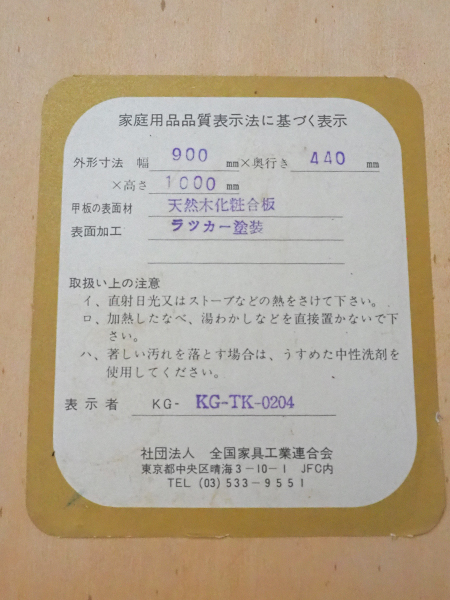 家庭用品品質表示法に基づく表示
外形寸法 幅 900 mm×奥行き 440 mm
×高さ 1000 mm
甲板の表面材 天然木化粧合板
表面加工 ラッカー塗装
取扱い上の注意
イ、直射日光又はストーブなどの熱をさけて下さい。
ロ、加熱したなべ、湯わかしなどを直接置かないで下
さい。
ハ、著しい汚れを落とす場合は、うすめた中性洗剤を
使用してください。
表示者 KG- KG-TK-0204
社団法人 全国家具工業連合会
東京都中央区晴海3-10-1 JFC内
TEL (03)533-9551